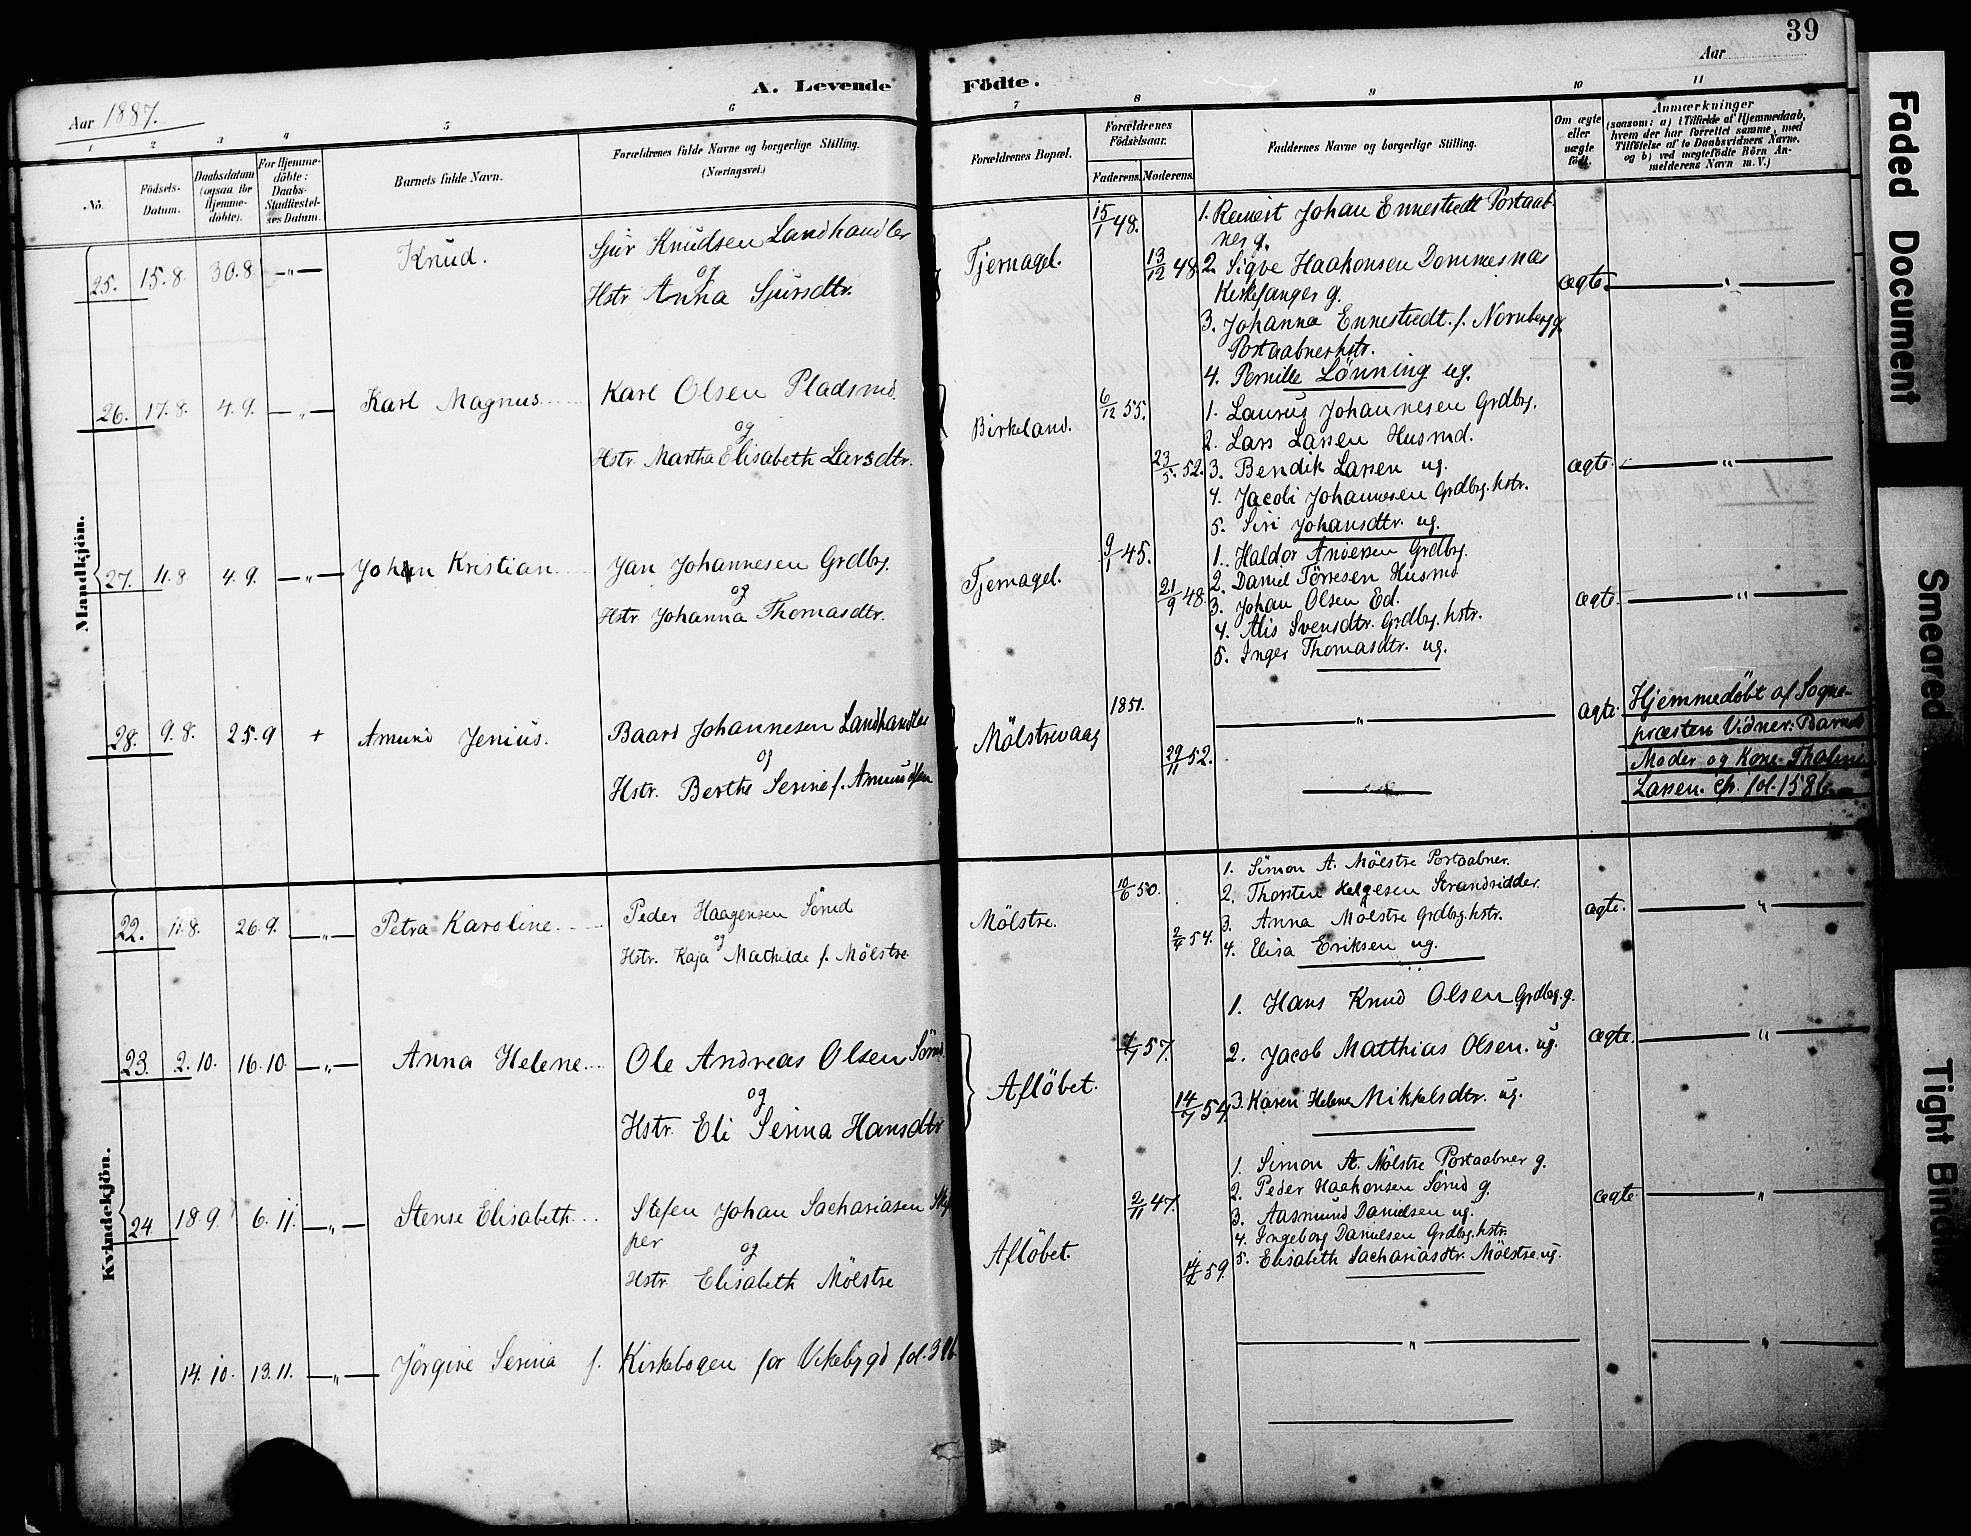 39
Aar 1887.
A. Levende Födte.
Aar
1 2 3 4 5 6 7 8 9 10 11
No.
Födsels-Datum.
Daabsdatum (ogsaa for Hjemmedöbte).
For Hjemmedöbte: Daabs-Stadfæstelses Datum.
Barnets fulde Navn.
Forældrenes fulde Navne og borgerlige Stilling.
(Næringsvei.)
Forældrenes Bopæl.
Forældrenes Födselsaar.
Faderens. Moderens.
Faddernes Navne og borgerlige Stilling.
Om ægte eller uægte födt.
Anmærkninger
(saasom: a) i Tilfælde af Hjemmedaab, hvem der har forrettet samme, med Tilföielse af to Daabsvidners Navne, og b) ved uægtefödte Börn Anmelderens Navn m. V.)
Mandkjön.
25. 15.8. 30.8 —„— Knud.
Sjur Knudsen Landhandler
og
Hstr. Anna Sjursdtr.
Tjernagel.
15/1 48.
13/12 48.
1. Reinert Johan Ennestvedt Postaab
ner g.
2. Sigve Haakonsen Dommesnæs
Kirkesanger g.
3. Johanna Ennestvedt f. Nornberg g.
Postaabnerhstr.
4. Pernille Lönning ug.
ægte. —„—
26. 17.8. 4.9. —„— Karl Magnus
Karl Olsen Pladsmd.
og
Hstr. Martha Elisabeth Larsdtr.
Birkeland.
6/12 55.
23/5 52.
1. Laurus Johannesen Grdbrg.
2. Lars Larsen Husmd.
3. Bendik Larsen ug.
4. Jacobi Johannesen Grdbrg. hstr.
5. Siri Johansdtr. ug.
ægte. —„—
27. 11.8 4.9. —„— Johan Kristian
Jan Johannesen Grdbrg.
og
Hstr. Johanna Thomasdtr.
Tjernagel.
9/1 45.
21/9 48.
1. Haldor Andersen Grdbrg.
2. Daniel Törresen Husmd
3. Johan Olsen Ed.
4. Alis Svensdtr. Grdbrg. hstr.
5. Inger Thomasdtr. ug.
ægte. —„—
28. 9.8. 25.9 + Amund Jenius.
Baard Johannesen Landhandler
og
Hstr. Berthe Serine f. Amundsen
Mölstrevaag
1851.
29/11 52.
—„—
ægte.
Hjemmedöbt af Sogne-
præsten Vidner: Barnets
Moder og Kone Thaline
Larsen. cfr. fol. 158b.
Kvindekjön.
22. 11.8. 26.9. —„— Petra Karoline
Peder Haagensen Sömd
og
Hstr. Kaja Mathilde f. Mölstre.
Mölstre.
10/6 50.
2/4 54.
1. Simon A. Mölstre Postaabner.
2. Thorsten Helgesen Strandsidder.
3. Anna Mölstre Grdbrg. hstr.
4. Elisa Eriksen ug.
ægte. —„—
23. 2.10. 16.10. —„— Anna Helene
Ole Andreas Olsen Sömd.
og
Hstr. Eli Serina Hansdtr
Aflöbet.
57.
14/7 54.
1. Hans Knud Olsen Grdbrg. g.
2. Jacob Matthias Olsen. ug.
3. Karen Helene Mikkelsdtr. ug.
ægte. —„—
24. 18.9. 6.11. —„— Stense Elisabeth
Stefen Johan Sachariasen Skip
per
og
Hstr. Elisabeth Mölstre
Aflöbet.
2/11 47.
59.
1. Simon A. Mölstre Postaabner g.
2. Peder Haakonsen Sömd g.
3. Aasmund Danielsen ug.
4. Ingeborg Danielsen Grdbrg. hstr.
5. Elisabeth Sachariasdtr. Mölstre. ug.
ægte —„—
14.10. 13.11. —„— Jörgine Serina f. Kirkebogen for Vikebygd fol. 39b.
—„— —„—
Faded Document
Smeared
Tight Binding